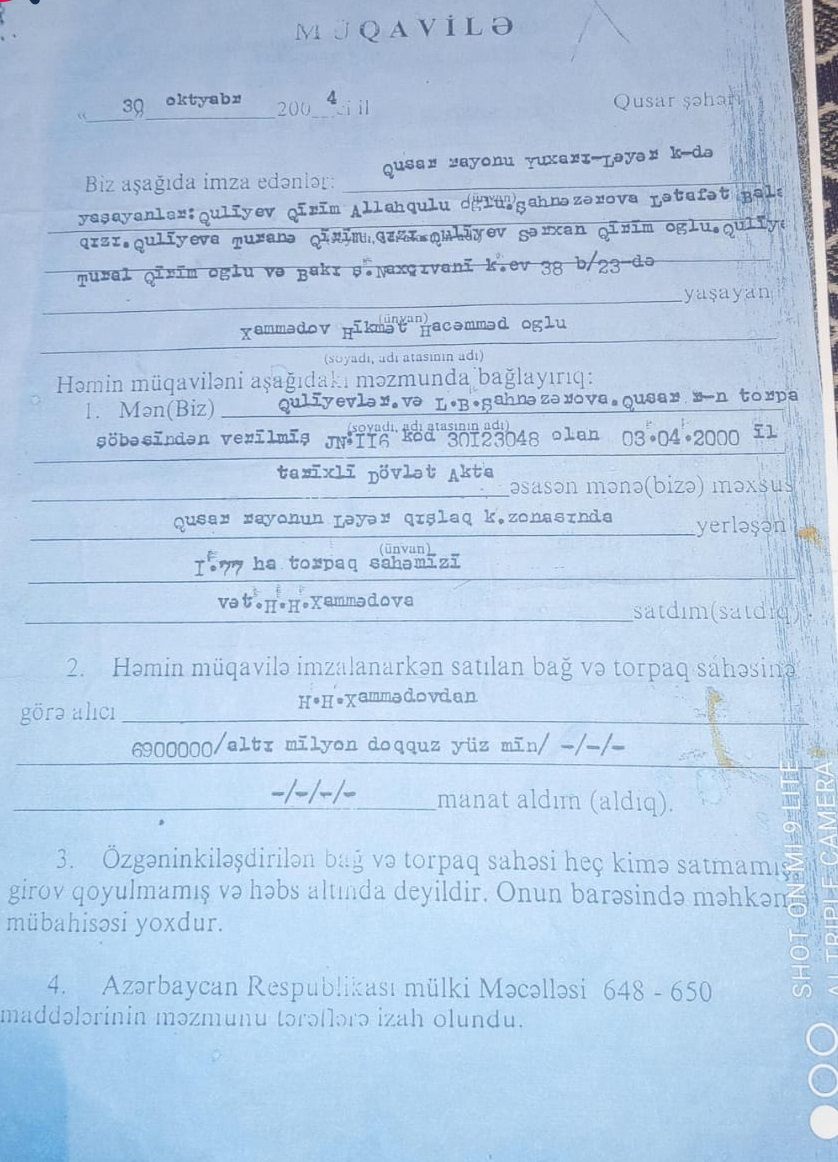 MÜQAVİLƏ
« 30 oktyabr 200 4 -ci il Qusar şəhəri
Biz aşağıda imza edənlər: Qusar rayonu Yuxarı-Ləyər k-də
yaşayanlar: Quliyev Qirim Allahqulu oğlu. Şahnəzərova Lətafət
(ünvan)
qızı. Quliyeva Turanə Qirim qızı. Quliyev Sərxan Qirim oglu.
Tural Qirim oglu və Bakı ş. Naxçıvani k.ev 38 b/23-də
yaşayan
Xəmmədov Hikmət Hacəmməd oglu
(ünvan)
(soyadı, adı atasının adı)
Həmin müqaviləni aşağıdakı məzmunda bağlayırıq:
1. Mən(Biz) Quliyevlər.və L.B.Şahnəzərova.Qusar r-n torpa
(soyadı, adı atasının adı)
şöbəsindən verilmiş JN:II6 kod 30I23048 olan 03.04.2000 il
tarixli Dövlət Akta
əsasən mənə(bizə) məxsus
Qusar rayonun Ləyər qışlaq k.zonasında
yerləşən
(ünvan)
I.77 ha torpaq sahəmizi
vət.H.H.Xəmmədova
satdım(satdıq).
2. Həmin müqavilə imzalanarkən satılan bağ və torpaq sahəsinə
görə alıcı H.H.Xəmmədovdan
6900000/altı milyon doqquz yüz min/ -/-/-
-/-/-/- manat aldım (aldıq).
3. Özgəninkiləşdirilən bağ və torpaq sahəsi heç kimə satmamış
girov qoyulmamış və həbs altında deyildir. Onun barəsində məhkəm
mübahisəsi yoxdur.
4. Azərbaycan Respublikası mülki Məcəlləsi 648 - 650
maddələrinin məzmunu tərəflərə izah olundu.
SHOT ON MI 9 LITE
AI TRIPLE CAMERA